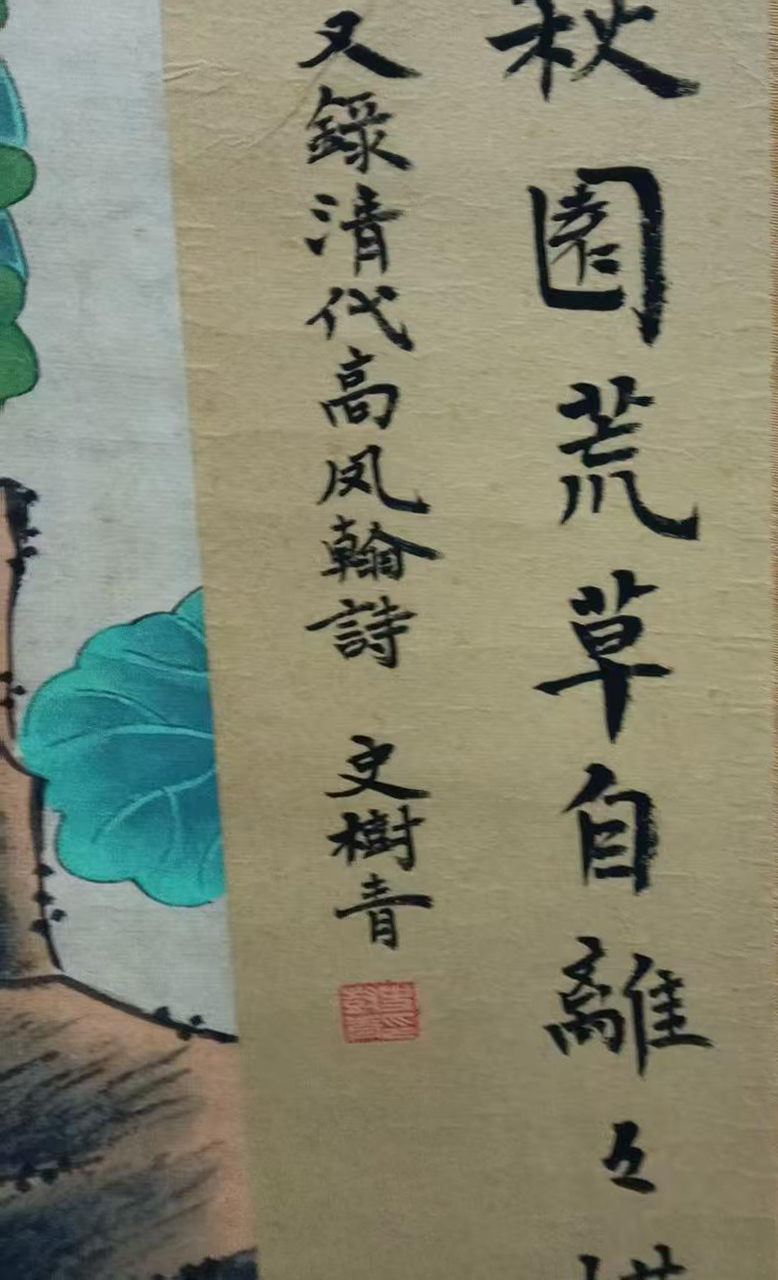 秋園荒草自離々
又錄清代高凤翰詩 史樹青